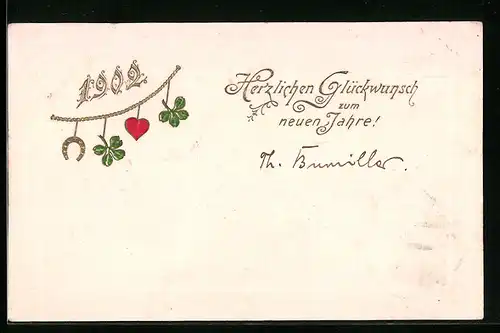 1902
Herzlichen Glückwunsch
zum
neuen Jahre!
Th. Bumiller.